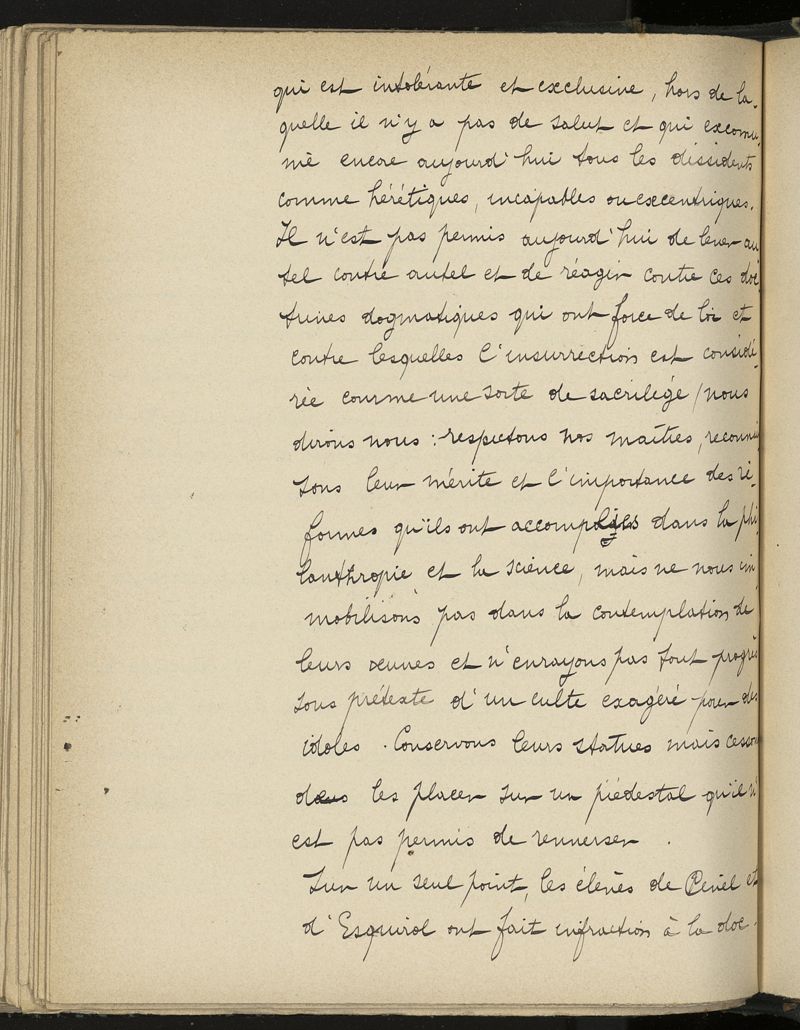 qui est intolérante et exclusive, hors de la-
quelle il n'y a pas de salut et qui excomu-
nie encore aujourd'hui tous les dissidents
comme hérétiques, incapables ou excentriques.
Il n'est pas permis aujourd'hui de lever au
tel contre autel et de réagir contre ces doc
trines dogmatiques qui ont force de loi et
contre lesquelles l'insurrection est considé-
rée comme une sorte de sacrilège / nous
dirons nous : respectons nos maîtres, reconnais
sons leur mérite et l'importance des ré-
formes qu'ils ont accomplies dans la phi
lanthropie et la science, mais ne nous im
mobilisons pas dans la contemplation de
leurs œuvres et n'enrayons pas tout progrès
sous prétexte d'un culte exagéré pour des
idoles. Conservons leurs statues mais cessons
de les placer sur un piédestal qu'il n'
est pas permis de renverser.
Sur un seul point, les élèves de Pinel et
d'Esquirol ont fait infraction à la doc-